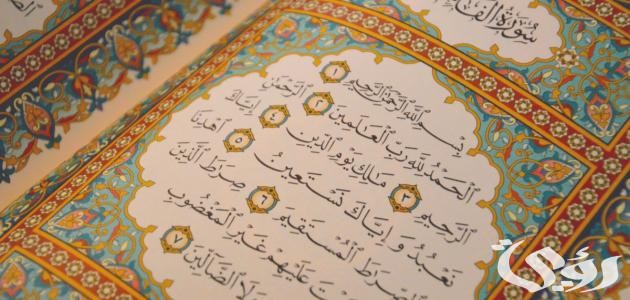 سُورَةُ
بِسْمِ ٱللَّهِ ٱلرَّحْمَٰنِ ٱلرَّحِيمِ ١
ٱلْحَمْدُ لِلَّهِ رَبِّ ٱلْعَٰلَمِينَ ٢ ٱلرَّحْمَٰنِ
ٱلرَّحِيمِ ٣ مَٰلِكِ يَوْمِ ٱلدِّينِ ٤ إِيَّاكَ
نَعْبُدُ وَإِيَّاكَ نَسْتَعِينُ ٥ ٱهْدِنَا
ٱلصِّرَٰطَ ٱلْمُسْتَقِيمَ ٦ صِرَٰطَ ٱلَّذِينَ
عَلَيْهِمْ غَيْرِ ٱلْمَغْضُوبِ
وَلَا ٱلضَّآلِّينَ ٧
رؤى